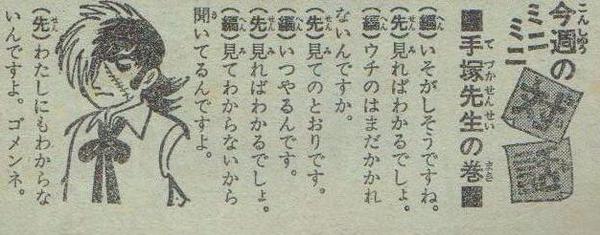 今週のミニミニ対話
手塚先生の巻
(編)いそがしそうですね。
(先)見ればわかるでしょ。
(編)ウチのはまだかかれ
ないんですか。
(先)見てのとおりです。
(編)いつやるんです。
(先)見ればわかるでしょ。
(編)見てわからないから
聞いてるんですよ。
(先)わたしにもわからな
いんですよ。ゴメンネ。